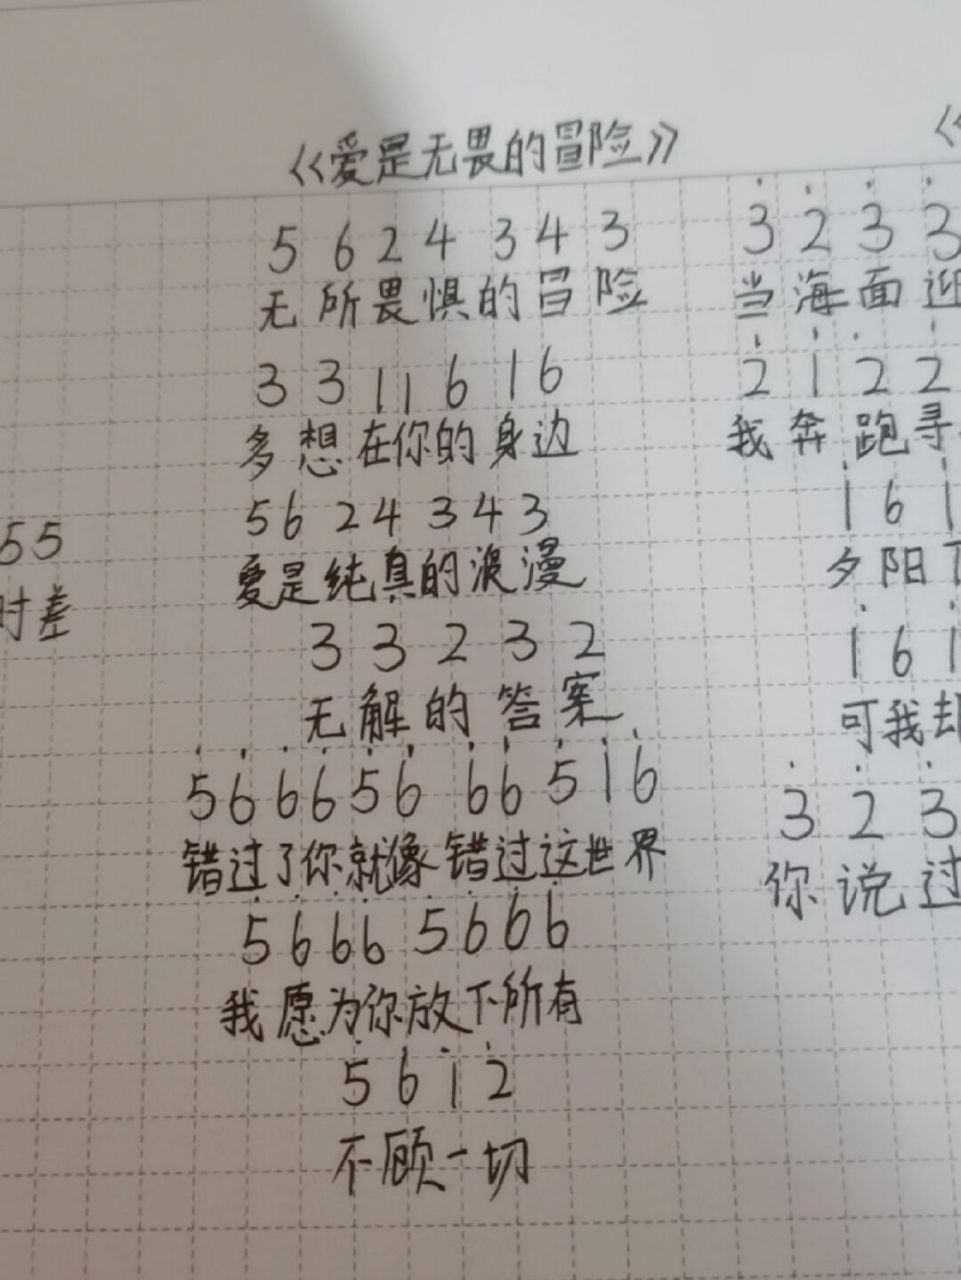 《爱是无畏的冒险》
5 6 2 4 3 4 3
无所畏惧的冒险
3 3 1 1 6 1 6
多想在你的身边
5 6 2 4 3 4 3
爱是纯真的浪漫
3 3 2 3 2
无解的答案
5 6 6 6 5 6 6 6 5 1 6
错过了你就像错过这世界
5 6 6 6 5 6 6 6
我愿为你放下所有
5 6 1 2
不顾一切
55
时差
《
3 2 3 3
当海面迎
2 1 2 2
我奔跑寻
1 6 1
夕阳下
1 6 1
可我却
3 2 3
你说过